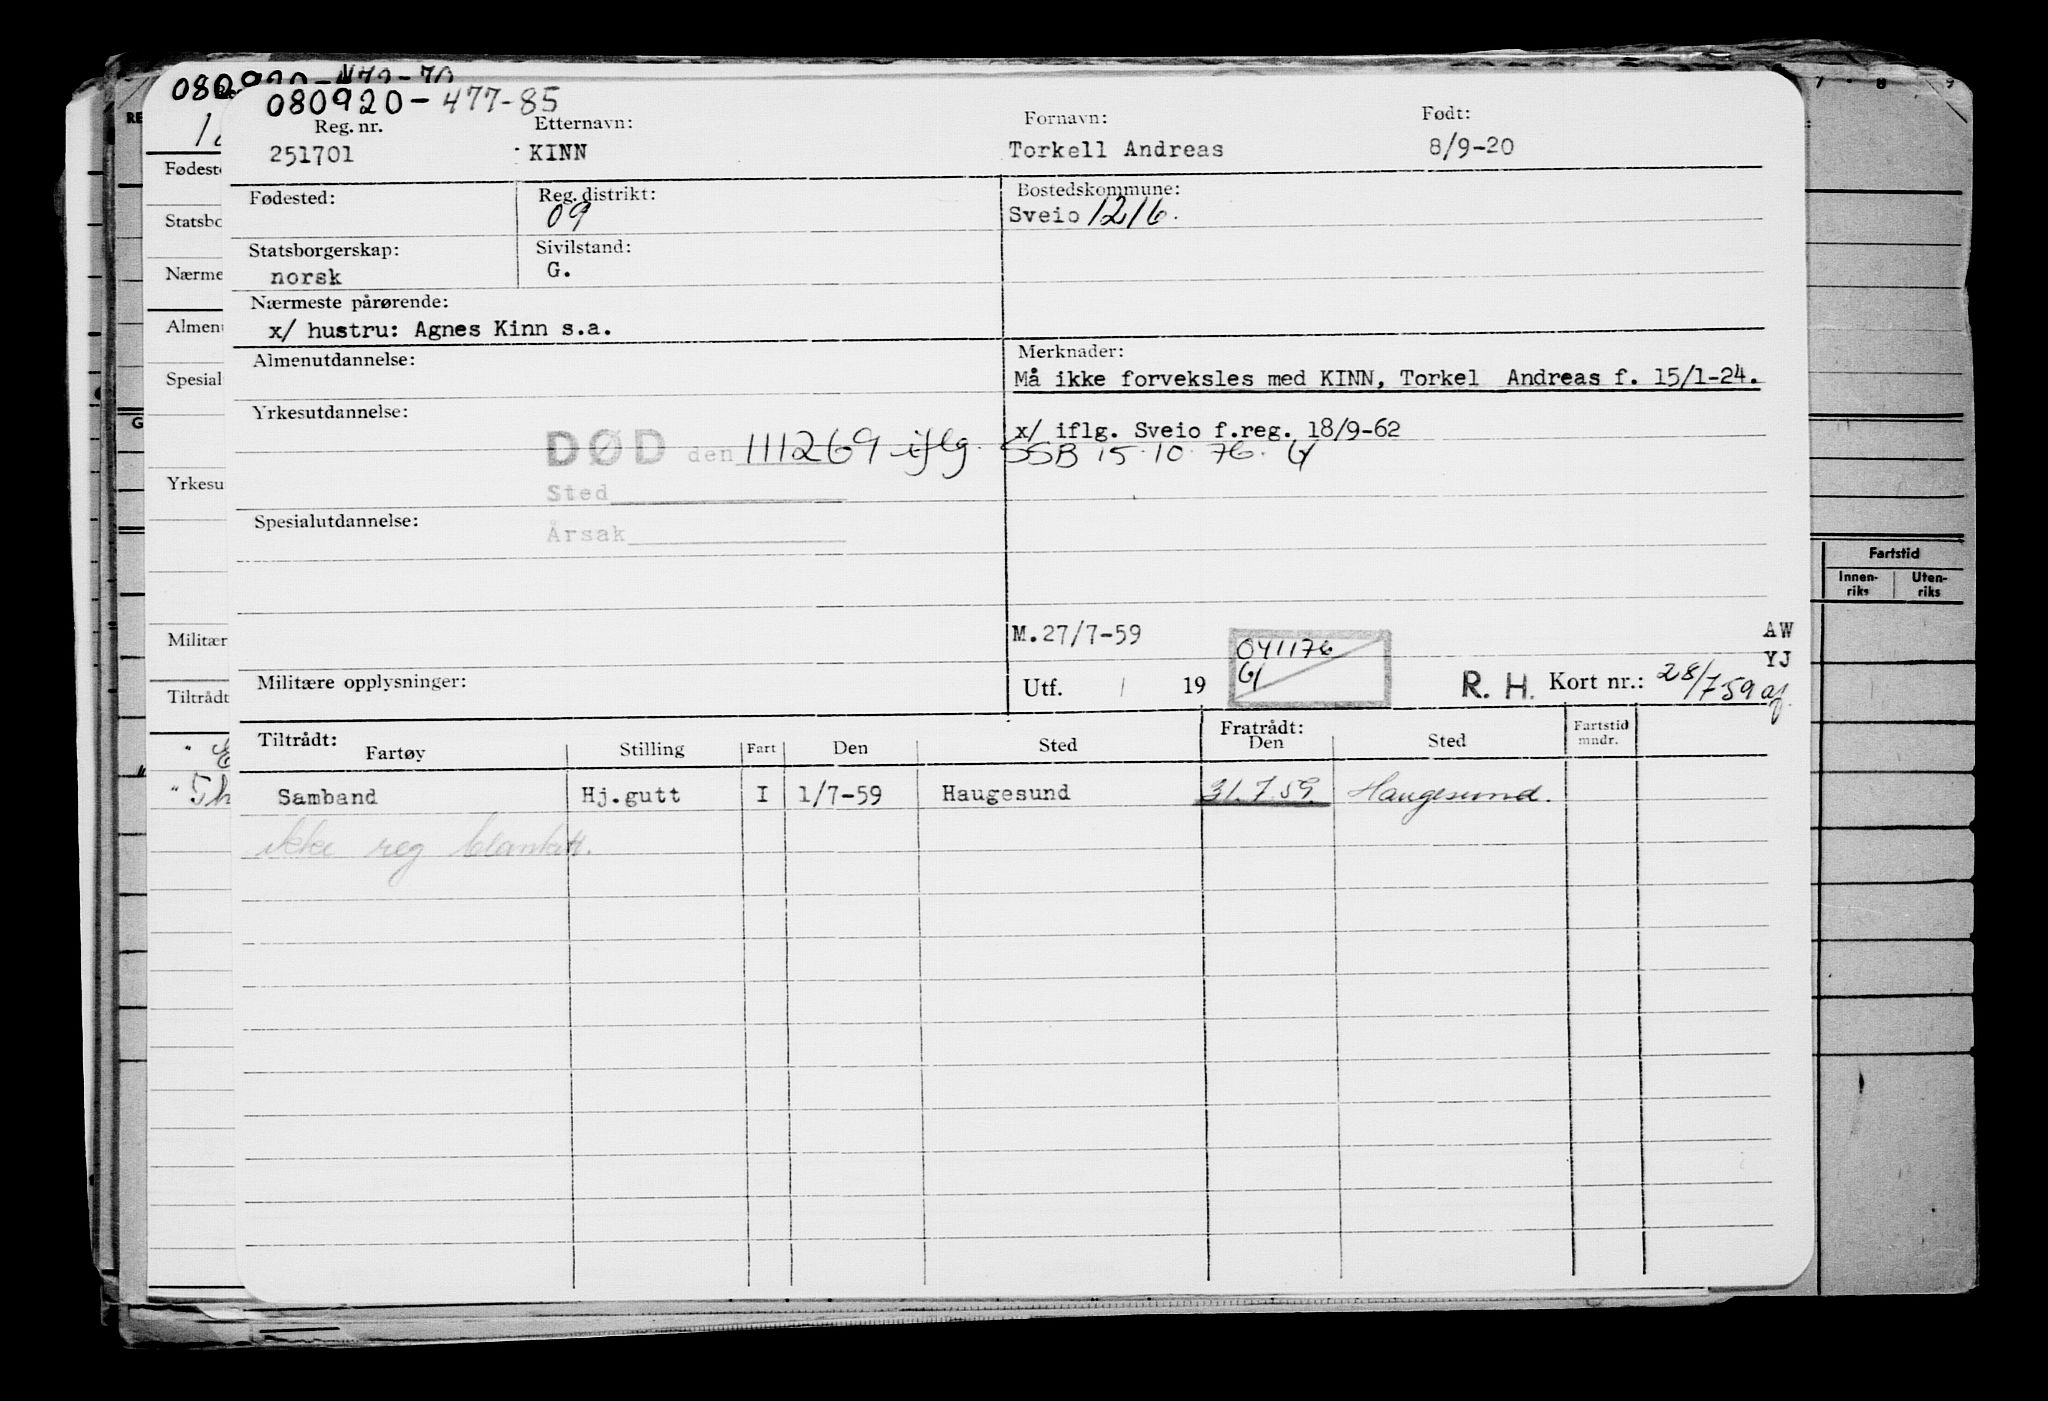 080920-477-85
Reg. nr. Etternavn: Fornavn: Født:
251701 KINN Torkell Andreas 8/9-20
Fødested: Reg. distrikt: Bostedskommune:
09 Sveio 1216.
Statsborgerskap: Sivilstand:
norsk G.
Nærmeste pårørende:
x/ hustru: Agnes Kinn s.a.
Almenutdannelse: Merknader:
Må ikke forveksles med KINN, Torkel Andreas f. 15/1-24.
Yrkesutdannelse:
x/ iflg. Sveio f.reg. 18/9-62
DØD den 111269 iflg. SSB 15.10.76.
Sted
Spesialutdannelse:
Årsak
M.27/7-59
AW
041176
YJ
Militære opplysninger: Utf. / 19 R. H. Kort nr.: 28/7 59
Tiltrådt: Fratrådt:
Fartøy Stilling Fart Den Sted Den Sted Fartstid mndr.
Samband Hj.gutt I 1/7-59 Haugesund 31.7.59. Haugesund.
ikke reg blankett.
RE
Fødest
Statsbo
Nærme
Almenu
Spesial
G
Yrkesu
Militær
Tiltrådt
7 8 9
Fartstid
Innen-riks Uten-riks